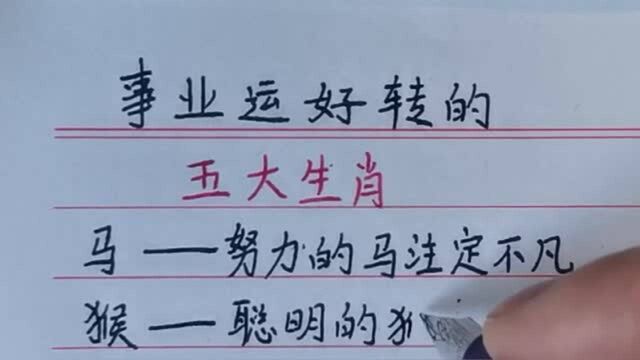 事业运好转的
五大生肖
马——努力的马注定不凡
猴——聪明的